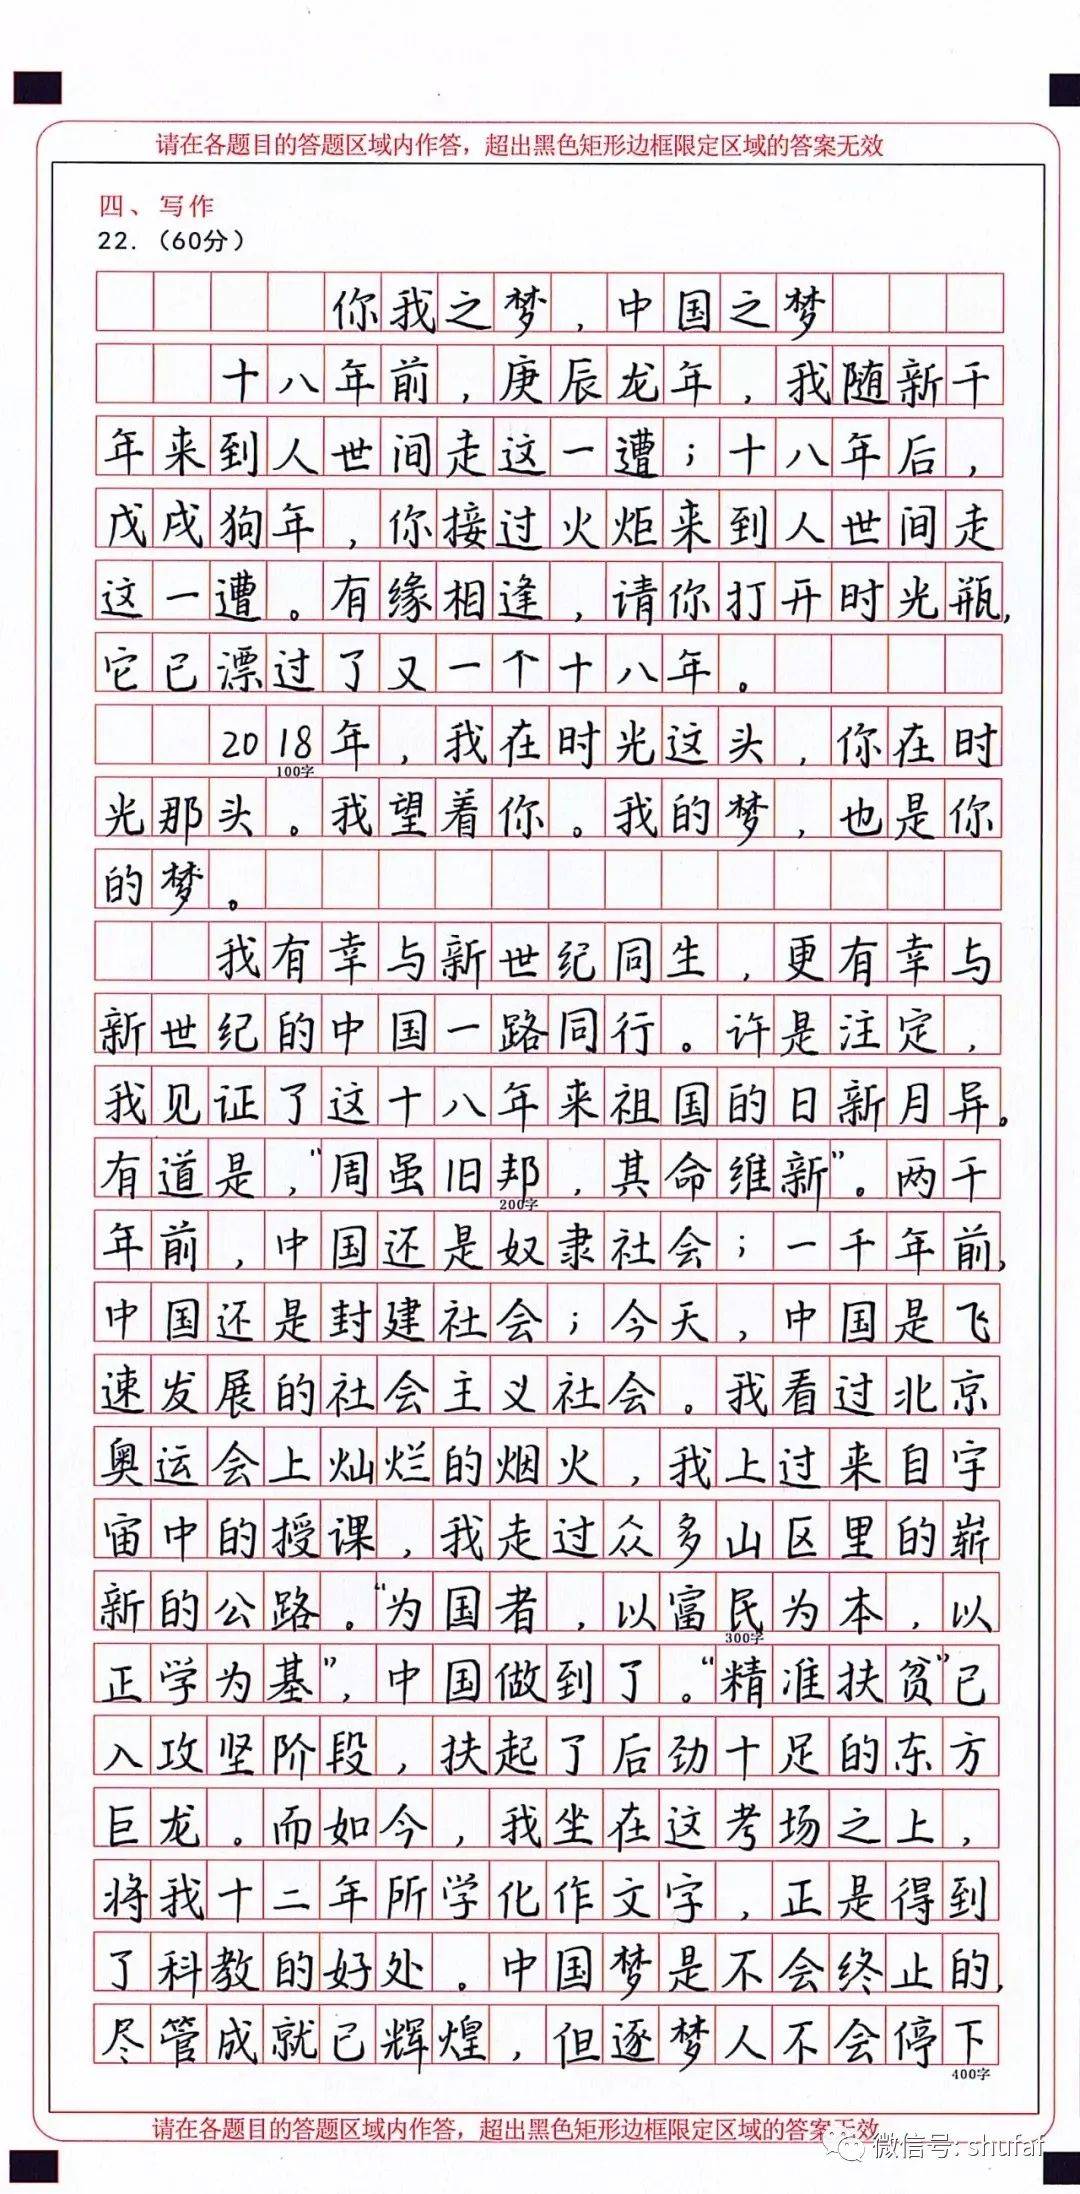 请在各题目的答题区域内作答，超出黑色矩形边框限定区域的答案无效
四、写作
22.（60分）
你我之梦，中国之梦
十八年前，庚辰龙年，我随新千
年来到人世间走这一遭；十八年后，
戊戌狗年，你接过火炬来到人世间走
这一遭。有缘相逢，请你打开时光瓶，
它已漂过了又一个十八年。
2018年，我在时光这头，你在时
100字
光那头。我望着你。我的梦，也是你
的梦。
我有幸与新世纪同生，更有幸与
新世纪的中国一路同行。许是注定，
我见证了这十八年来祖国的日新月异。
有道是，“周虽旧邦，其命维新”。两千
200字
年前，中国还是奴隶社会；一千年前，
中国还是封建社会；今天，中国是飞
速发展的社会主义社会。我看过北京
奥运会上灿烂的烟火，我上过来自宇
宙中的授课，我走过众多山区里的崭
新的公路。“为国者，以富民为本，以
300字
正学为基”，中国做到了。“精准扶贫”已
入攻坚阶段，扶起了后劲十足的东方
巨龙。而如今，我坐在这考场之上，
将我十二年所学化作文字，正是得到
了科教的好处。中国梦是不会终止的，
尽管成就已辉煌，但逐梦人不会停下
400字
请在各题目的答题区域内作答，超出黑色矩形边框限定区域的答案无效
微信号: shufaf